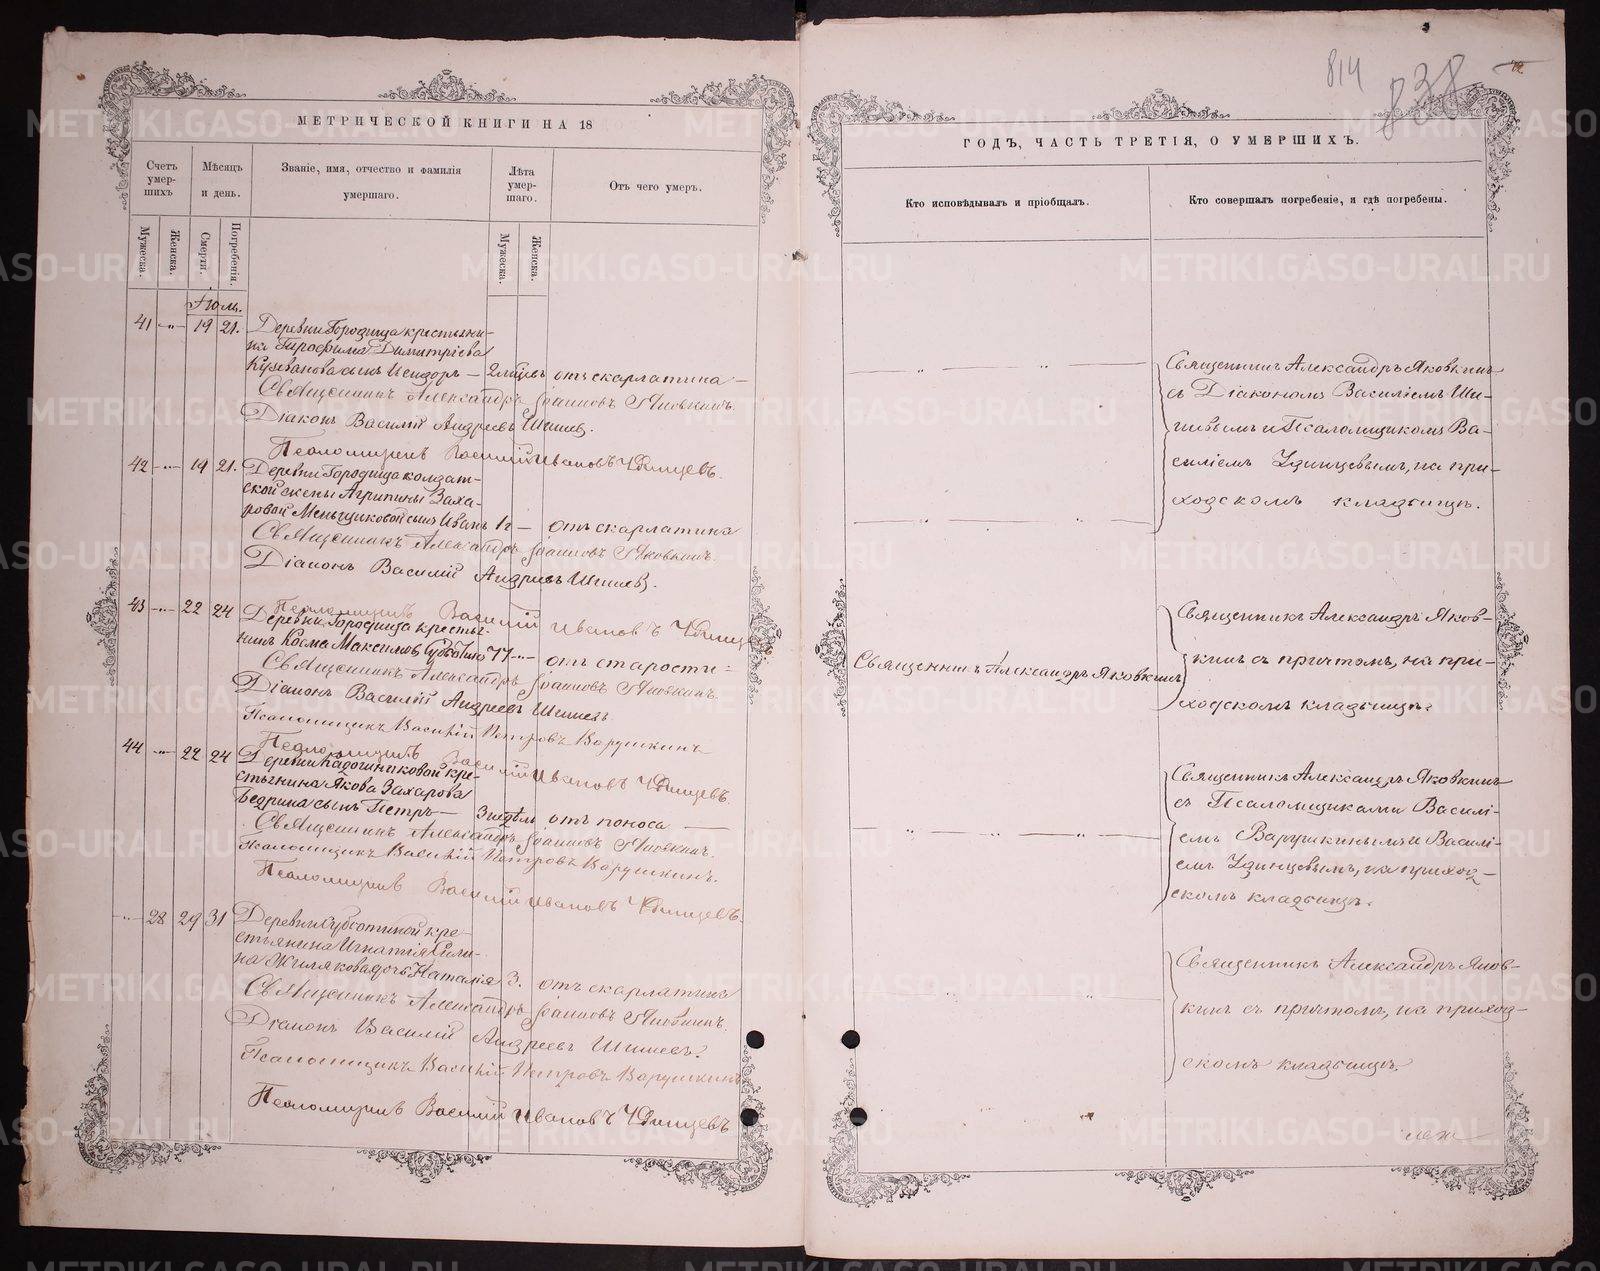 814
838
МЕТРИЧЕСКОЙ КНИГИ НА 18
Счетъ умер-шихъ
Мѣсяцъ и день.
Званіе, имя, отчество и фамилія умершаго.
Лѣта умер-шаго.
Отъ чего умеръ.
Мужеска.
Женска.
Смерти.
Погребенія.
Мужеска.
Женска.
Іюль.
41 -„- 19 21. Деревни Городища крестьяни-
на Трофима Димитріева
Кузеванова сынъ Исидоръ — 2 мѣсяцевъ отъ скарлатина —
Священникъ Александръ Іоанновъ Яковкинъ.
Діаконъ Василій Андреевъ Шишевъ.
Псаломщикъ Василій Ивановъ Удинцевъ.
42 -„- 19 21. Деревни Городища солдат-
ской жены Агрипины Заха-
ровой Меньщиковой сынъ Иванъ 1 г — отъ скарлатина
Священникъ Александръ Іоанновъ Яковкинъ.
Діаконъ Василій Андреевъ Шишевъ.
Псаломщикъ Василій Ивановъ Удинцевъ
43 -„- 22 24 Деревни Городища кресть-
нинъ Косма Максимов 77 -„- отъ старости
Священникъ Александръ Іоанновъ Яковкинъ.
Діаконъ Василій Андреевъ Шишевъ
Псаломщикъ Василій Петровъ Варушкинъ
Псаломщикъ Василій Ивановъ Удинцевъ.
44 -„- 22 24 Деревни кре-
стьянина Якова Захарова
Бедрина сынъ Петръ — 3 недѣли отъ поноса
Священникъ Александръ Іоанновъ Яковкинъ.
Псаломщикъ Василій Петровъ Варушкинъ.
Псаломщикъ Василій Ивановъ Удинцевъ.
-„- 28 29 31 Деревни Субботиной кре-
стьянина Игнатія Сили-
на Жилякова дочь Наталія 3. отъ скарлатина
Священникъ Александръ Іоанновъ Яковкинъ.
Діаконъ Василій Андреевъ Шишевъ.
Псаломщикъ Василій Петровъ Варушкинъ
Псаломщикъ Василій Ивановъ Удинцевъ
ГОДЪ, ЧАСТЬ ТРЕТІЯ, О УМЕРШИХЪ.
Кто исповѣдывалъ и пріобщалъ.
Кто совершалъ погребеніе, и гдѣ погребены.
Священникъ Александръ Яковкинъ
съ Діакономъ Василіемъ Ши-
шевымъ и Псаломщикомъ Ва-
силіемъ Удинцевымъ, на при-
ходскомъ кладбищѣ.
Священникъ Александръ Яковкинъ
Священникъ Александръ Яков-
кинъ съ причтомъ, на при-
ходскомъ кладбищѣ.
Священникъ Александръ Яковкинъ
съ Псаломщиками Василі-
емъ Варушкинымъ и Василі-
емъ Удинцевымъ, на приход-
скомъ кладбищѣ.
Священникъ Александръ Яков-
кинъ съ причтомъ, на приход-
скомъ кладбищѣ.
METRIKI.GASO-URAL.RU